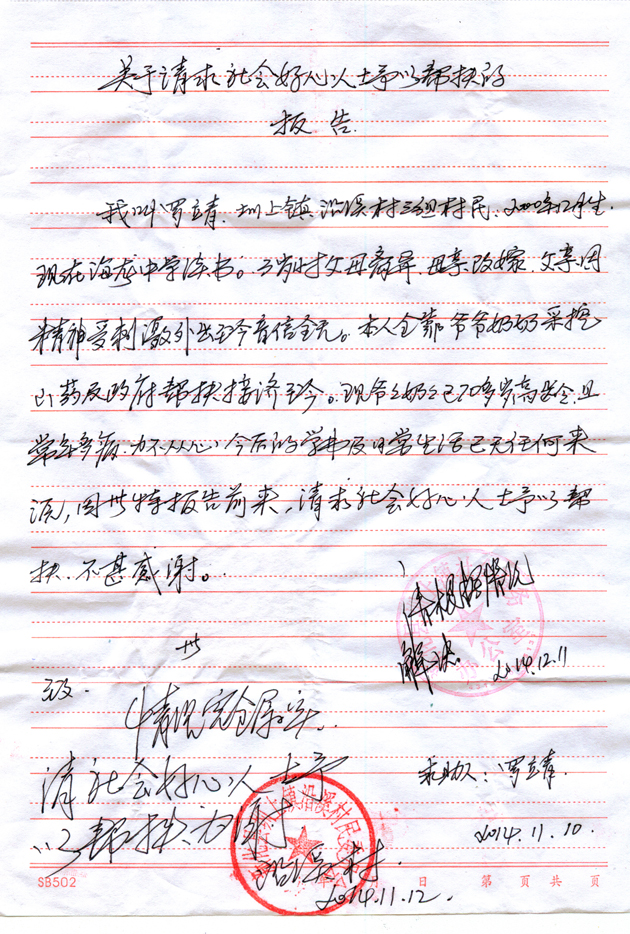 关于请求社会好心人士予以帮扶的
报告
我叫罗靖,圳上镇沿溪村三组村民,2000年12月生.
现在海龙中学读书。3岁时父母离异,母亲改嫁,父亲因
精神受刺激外出至今音信全无。本人全靠爷爷奶奶采挖
山药及政府帮扶接济至今。现爷爷奶奶已70多岁高龄,且
常年多病,力不从心,今后的学中及日常生活已无任何来
沅,因此特报告前来,请求社会好心人士予以帮
扶.不甚感谢。
此
致.
请根据情况
解决.
2014.12.11
情况完全属实.
请社会好心人士予
以帮扶为谢
求助人:罗靖.
2014.11.10.
圳上镇沿溪村民
沿溪村.
2014.11.12.
SB502
月 日 第 页 共 页